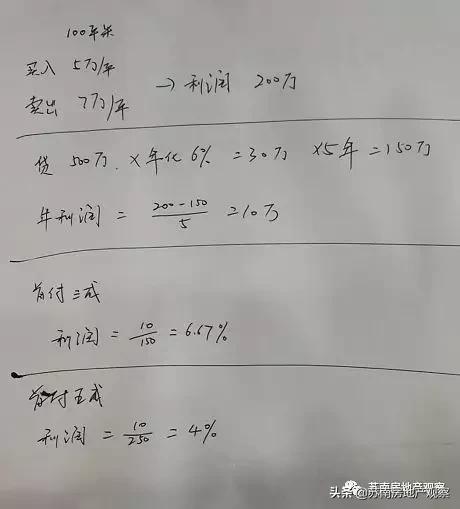 100平米
买入 5万/平
卖出 7万/平
→ 利润 200万
贷 500万 × 年化 6% = 30万 ×5年 = 150万
年利润 = (200-150)/5 = 10万
首付三成
利润 = 10/150 = 6.67%
首付五成
利润 = 10/250 = 4%
苏南房地产观察
头条@苏南房地产观察